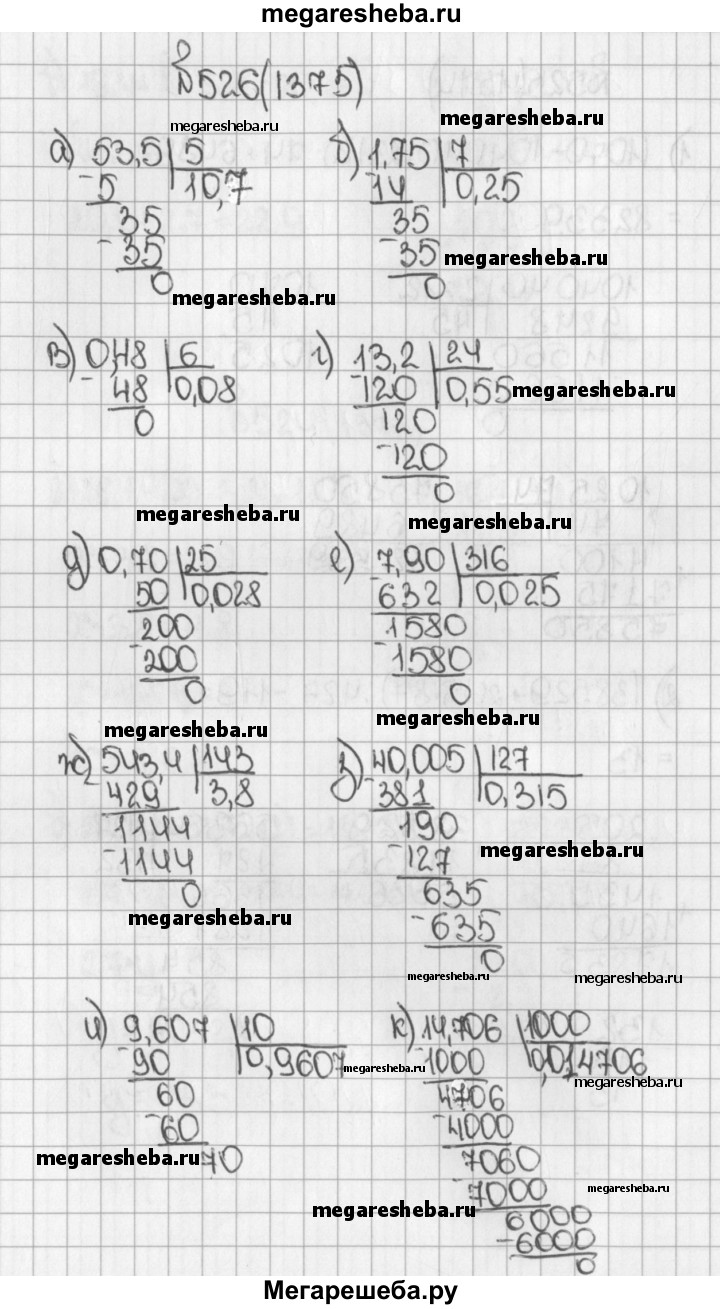 megaresheba.ru
№526(1375)
megaresheba.ru
megaresheba.ru
а) 53,5 | 5
-5 | 10,7
35
-35
0
megaresheba.ru
б) 1,75 | 7
14 | 0,25
35
-35
0
megaresheba.ru
в) 0,48 | 6
-48 | 0,08
0
megaresheba.ru
г) 13,2 | 24
-120 | 0,55
120
-120
0
megaresheba.ru
megaresheba.ru
д) 0,70 | 25
50 | 0,028
200
-200
0
megaresheba.ru
е) 7,90 | 316
-632 | 0,025
1580
-1580
0
megaresheba.ru
ж) 543,4 | 143
-429 | 3,8
1144
-1144
0
megaresheba.ru
з) 40,005 | 127
-381 | 0,315
190
-127
635
-635
0
megaresheba.ru
megaresheba.ru
megaresheba.ru
и) 9,607 | 10
-90 | 0,9607
60
-60
70
megaresheba.ru
megaresheba.ru
к) 14,706 | 1000
-1000 | 0,014706
4706
-4000
7060
-7000
6000
-6000
0
megaresheba.ru
megaresheba.ru
megaresheba.ru
Мегарешеба.ру